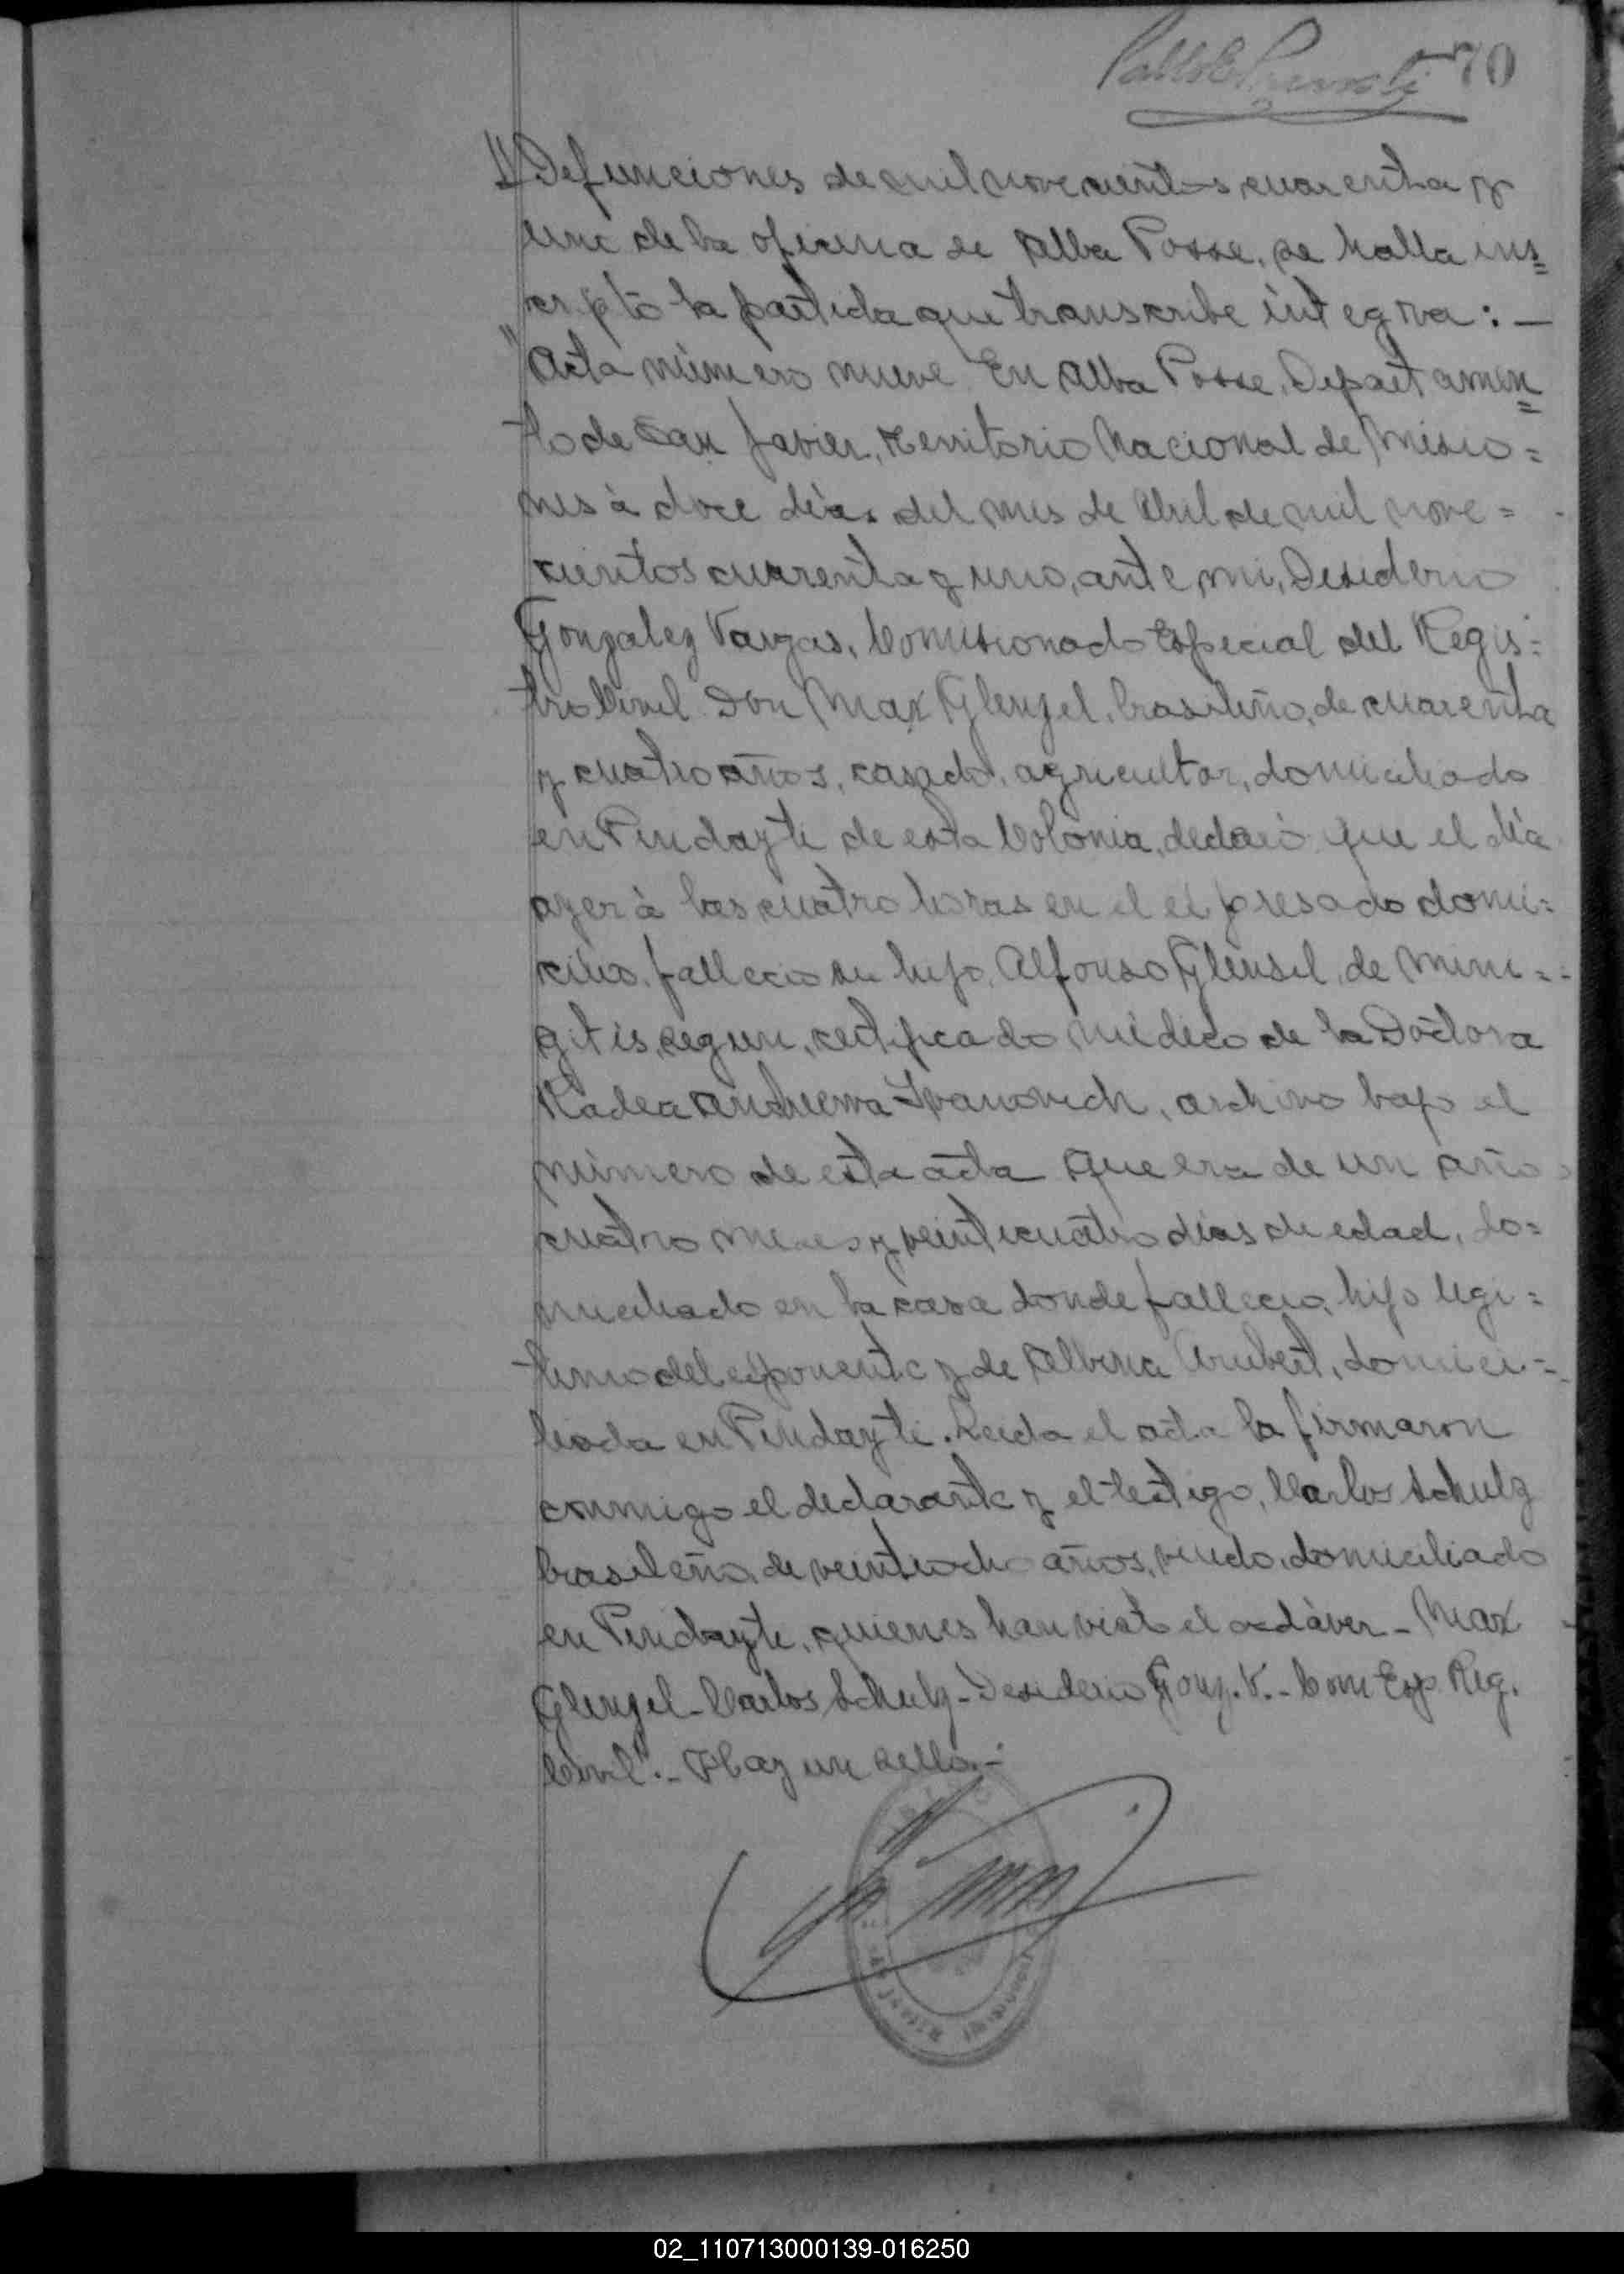 70
Defunciones de mil novecientos cuarenta y
uno de la oficina de Alba Posse, se halla ins=
cripto la partida que transcribe íntegra: —
"Acta número nueve. En Alba Posse, Departamen=
to de San Javier, Territorio Nacional de Misio=
nes à doce dias del mes de Abril de mil nove=
cientos cuarenta y uno, ante mi, Desiderio
Gonzalez Vargas, Comisionado Especial del Regis=
tro Civil Don Max Glenzel, brasileño, de cuarenta
y cuatro años, casado, agricultor, domiciliado
en Pindayti de esta Colonia, declaró que el día
ayer à las cuatro horas en el expresado domi=
cilio, fallecio su hijo, Alfonso Glensel, de mini=
gitis, segun, certificado médico de la Doctora
Ivanovich, archivo bajo el
número de esta acta que era de un año
cuatro meses y veinticuatro días de edad, do=
miciliado en la casa donde fallecio, hijo legi=
timo del exponente y de Albina, domici=
liada en Pindayti. Leida el acta la firmaron
conmigo el declarante y el testigo, Carlos Schulz
brasileño, de veintiocho años, viudo, domiciliado
en Pindayti, quienes han visto el cadàver - Max
Glenzel - Carlos Schulz - Desiderio Gonz. V. - Com Esp. Reg.
Civil". - Hay un sello. -
02_110713000139-016250